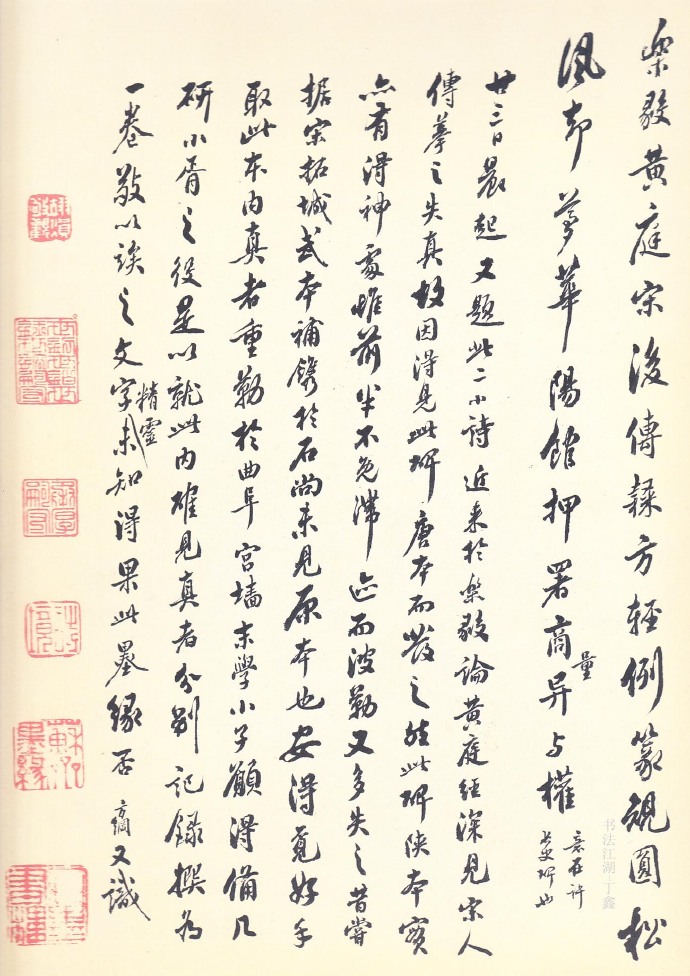 樂毅黃庭宋後傳隸方輕例篆規圓松
風却夢華陽館押署商量异与權
意在許
長史碑也
廿三日晨起又題此二小詩近来於樂毅論黃庭經深見宋人
傳摹之失真故因得見此碑唐本而發之然此碑陝本實
亦有得神處惟前半不免滯迹而波勒又多失之昔嘗
据宋拓城武本補鐫於石尚未見原本也安得覓好手
取此本内真者重勒於曲阜宮墻末學小子願得備几
研小胥之役是以就此内確見真者分别記錄撰為
一卷敬以俟之文字精靈未知得果此墨緣否方綱又識
书法江湖-丁鑫